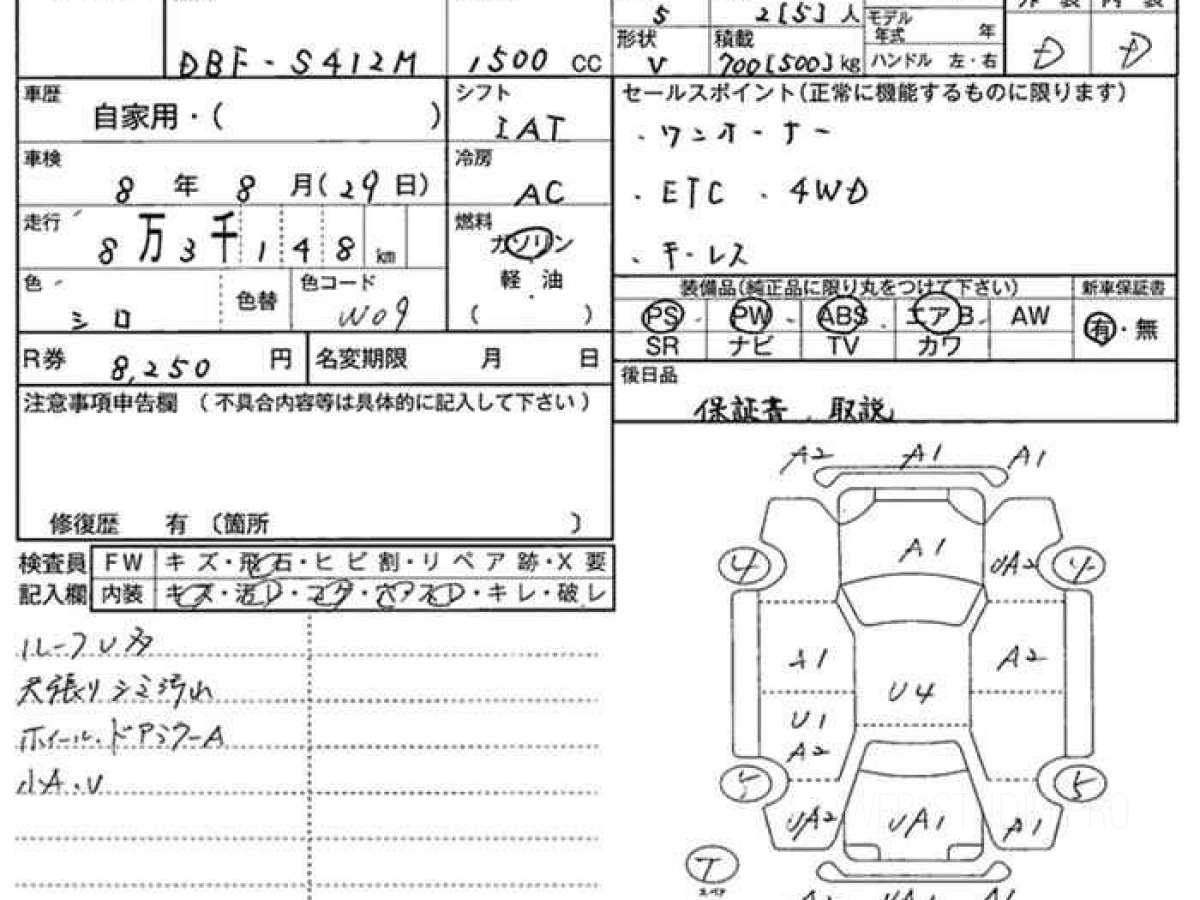 5
2[5]人
モデル
年式 年
DBF-S412M
1500 cc
形状
V
積載
700[500]kg
ハンドル 左・右
D
D
車歴
自家用・( )
シフト
IAT
セールスポイント(正常に機能するものに限ります)
・ワンオーナー
・ETC ・4WD
・キーレス
車検
8 年 8 月(29日)
冷房
AC
走行
8万3千148km
燃料
ガソリン
軽 油
( )
色
シロ
色替
色コード
W09
装備品(純正品に限り丸をつけて下さい)
新車保証書
PS PW ABS エアB AW
有・無
SR ナビ TV カワ
R券 8,250 円
名変期限 月 日
後日品
保証書、取説
注意事項申告欄 (不具合内容等は具体的に記入して下さい)
修復歴 有 〔箇所 〕
検査員
記入欄
FW キズ・飛石・ヒビ割・リペア跡・X要
内装 キズ・汚レ・コゲ・穴アスレ・キレ・破レ
ルーフU多
天張りシミ汚れ
ホイール・ドアミラーA
小A・U
A2 A1 A1
A1
4
UA2
4
A1
A2
U4
U1
A2
5
5
UA2
UA1
A1
T
スペア